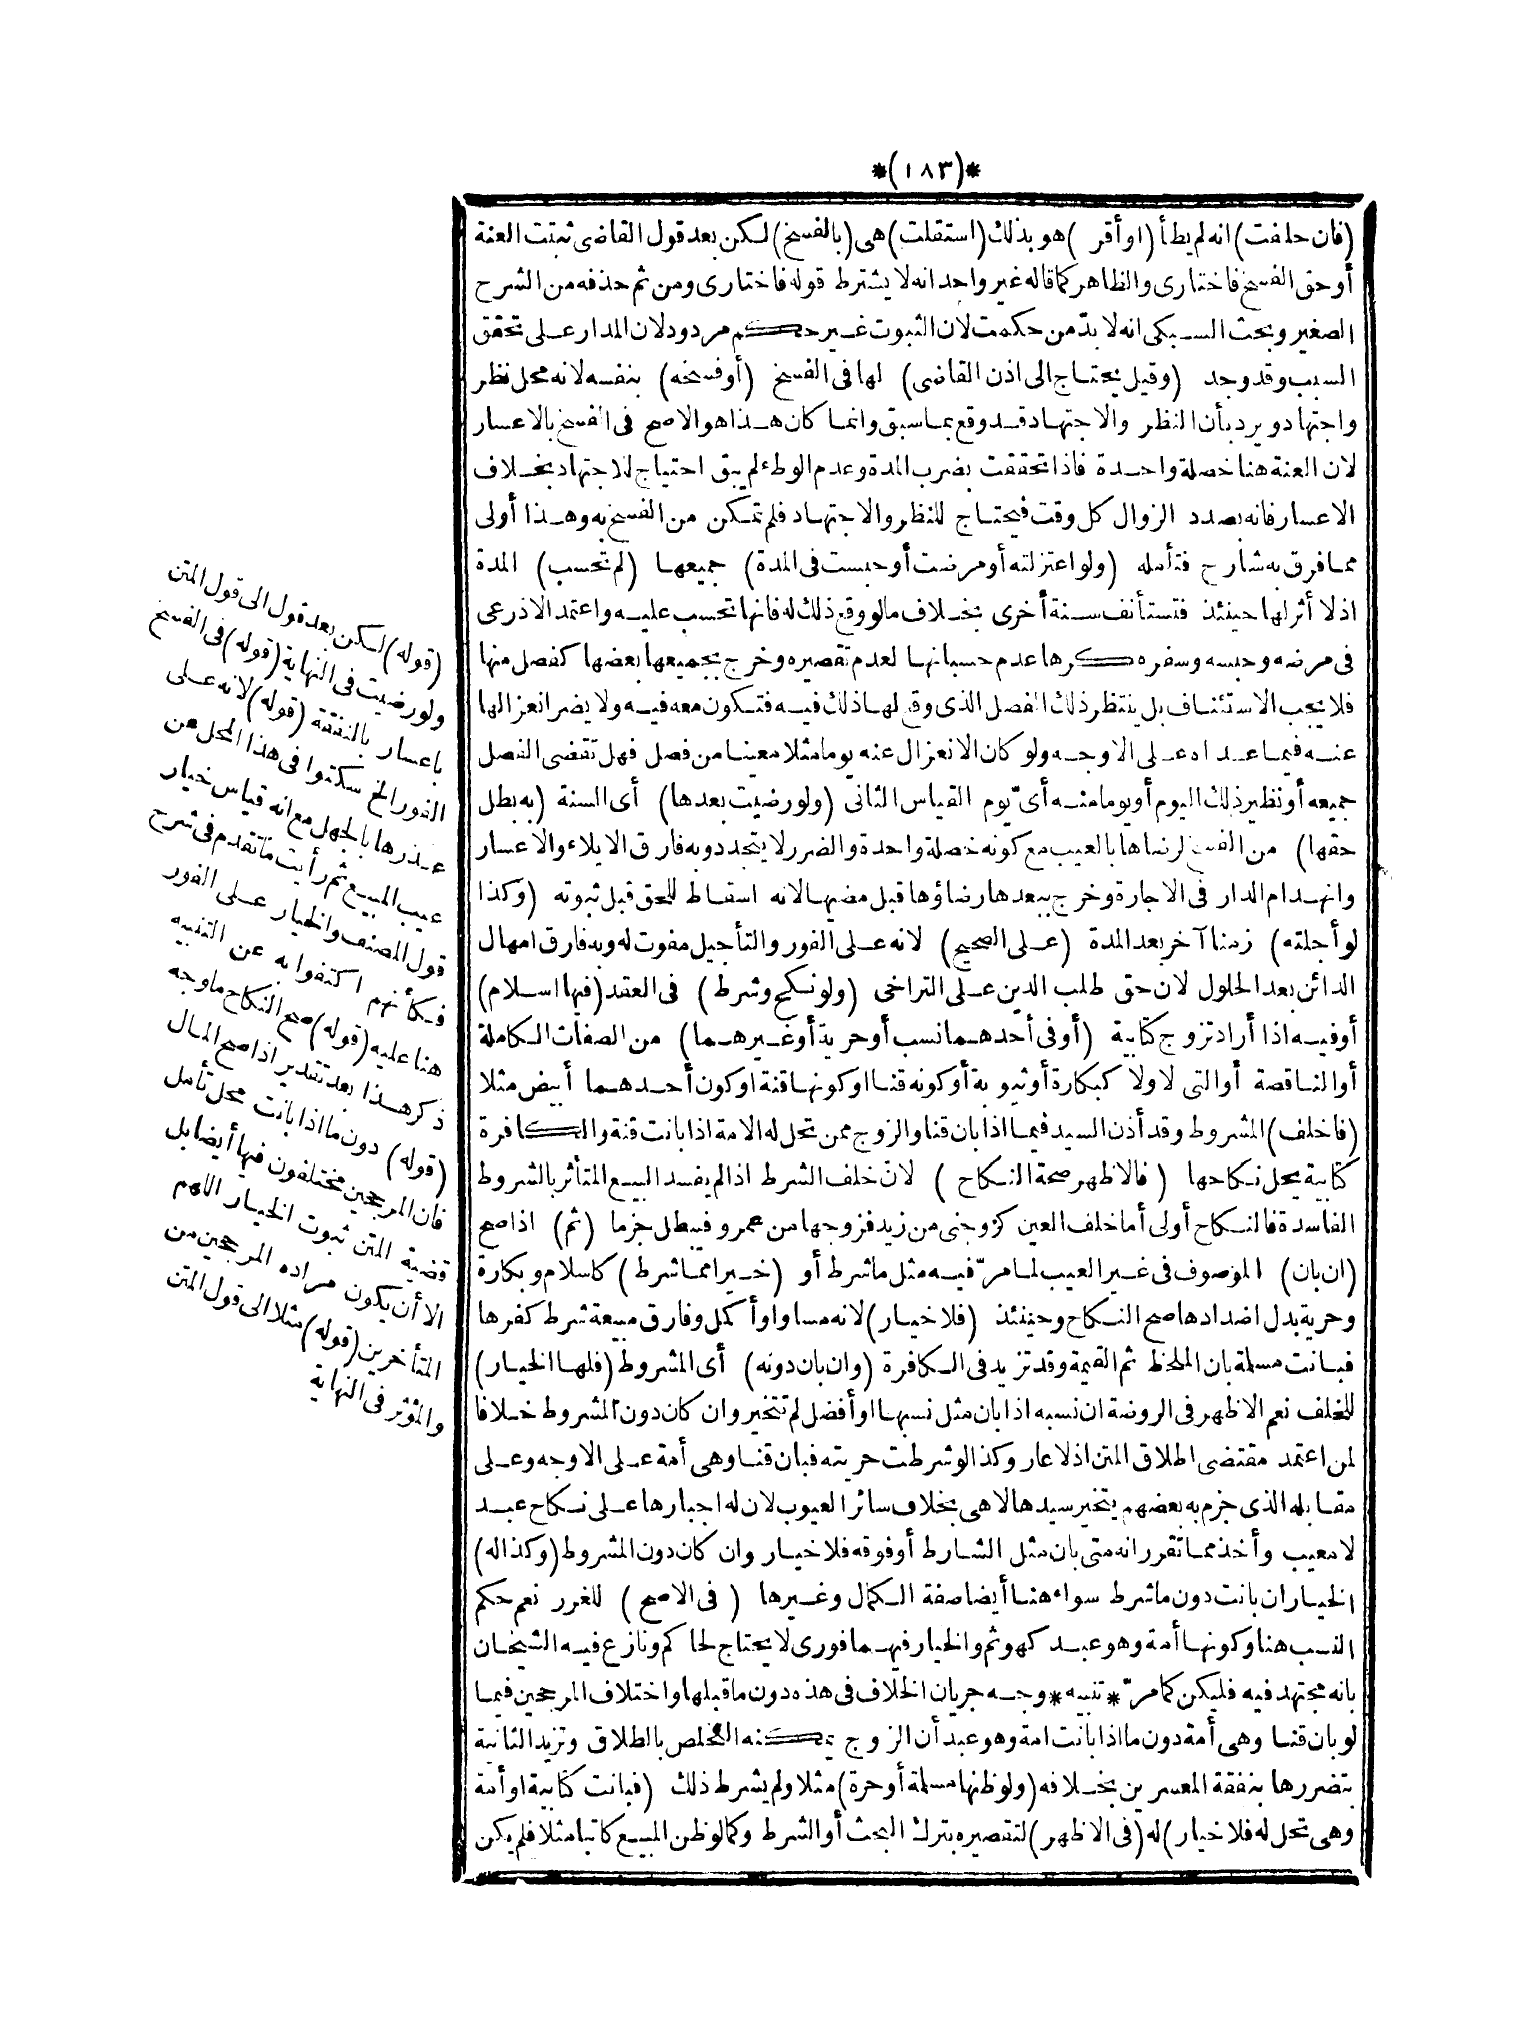 *(١٨٣)*
(فان حلفت) انه لم يطأ (او أقر) هو بذلك (استقلت) هى (بالفسخ) لكن بعد قول القاضى ثبتت العنة
أو حق الفسخ فاختارى والظاهر كما قاله غير واحد انه لا يشترط قوله فاختارى ومن ثم حذفه من الشرح
الصغير وبحث السبكى انه لا بدّ من حكمت لان الثبوت غير حكم مردود لان المدار على تحقق
السبب وقد وجد (وقيل يحتاج الى اذن القاضى) لها فى الفسخ (أو فسخه) بنفسه لانه محل نظر
واجتهاد ويرد بأن النظر والاجتهاد قد وقع بما سبق وانما كان هذا هو الاصح فى الفسخ بالاعسار
لان العنة هنا خصلة واحدة فاذا تحققت بضرب المدة وعدم الوطء لم يبق احتياج للاجتهاد بخلاف
الاعسار فانه بصدد الزوال كل وقت فيحتاج للنظر والاجتهاد فلم تمكن من الفسخ به وهذا أولى
مما فرق به شارح فتأمله (ولو اعتزلته أو مرضت أو حبست فى المدة) جميعها (لم تحسب) المدة
اذ لا أثر لها حينئذ فتستأنف سنة أخرى بخلاف ما لو وقع ذلك له فانها تحسب عليه واعتمد الاذرعى
فى مرضه وحبسه وسفره كرها عدم حسبانها لعدم تقصيره وخرج بجميعها بعضها كفصل منها
فلا يجب الاستئناف بل ينتظر ذلك الفصل الذى وقع لها ذلك فيه فتكون معه فيه ولا يضر انعزالها
عنه فيما عداه على الاوجه ولو كان الانعزال عنه يوما مثلا معينا من فصل فهل تقضى الفصل
جميعه أو نظير ذلك اليوم أو يوما منه أى يوم القياس الثانى (ولو رضيت بعدها) أى السنة (به بطل
حقها) من الفسخ لرضاها بالعيب مع كونه خصلة واحدة والضرر لا يتجدد وبه فارق الايلاء والاعسار
وانهدام الدار فى الاجارة وخرج ببعدها رضاؤها قبل مضيها لانه اسقاط للحق قبل ثبوته (وكذا
لو أجلته) زمنا آخر بعد المدة (على الصحيح) لانه على الفور والتأجيل مفوت له وبه فارق امهال
الدائن بعد الحلول لان حق طلب الدين على التراخى (ولو نكح وشرط) فى العقد (فيها اسلام)
أو فيه اذا أراد تزوج كتابية (أو فى أحدهما نسب أو حرية أو غيرهما) من الصفات الكاملة
أو الناقصة أو التى لا ولا كبكارة أو ثيوبة أو كونه قنا او كونها قنة او كون أحدهما أبيض مثلا
(فاخلف) المشروط وقد أذن السيد فيما اذا بان قنا والزوج ممن تحل له الامة اذا بانت قنة والكافرة
كتابية يحل نكاحها (فالاظهر صحة النكاح) لانّ خلف الشرط اذا لم يفسد البيع المتأثر بالشروط
الفاسدة فالنكاح أولى أما خلف العين كزوجنى من زيد فزوجها من عمرو فيبطل جزما (ثم) اذا صح
(ان بان) الموصوف فى غير العيب لما مرّ فيه مثل ما شرط أو (خيرا مما شرط) كاسلام وبكارة
وحرية بدل اضدادها صح النكاح وحينئذ (فلا خيار) لانه مساو او أكمل وفارق مبيعة شرط كفرها
فبانت مسلمة بان الملحظ ثم القيمة وقد تزيد فى الكافرة (وان بان دونه) أى المشروط (فلها الخيار)
للخلف نعم الاظهر فى الروضة ان نسبه اذا بان مثل نسبها او أفضل لم تتخير وان كان دون المشروط خلافا
لمن اعتمد مقتضى اطلاق المتن اذ لا عار وكذا لو شرطت حريته فبان قنا وهى أمة على الاوجه وعلى
مقابله الذى جزم به بعضهم يتخير سيدها لا هى بخلاف سائر العيوب لان له اجبارها على نكاح عبد
لا معيب وأخذ مما تقرر انه متى بان مثل الشارط أو فوقه فلا خيار وان كان دون المشروط (وكذا له)
الخيار ان بانت دون ما شرط سواء هنا أيضا صفة الكمال وغيرها (فى الاصح) للغرر نعم حكم
النسب هنا وكونها أمة وهو عبد كهو ثم والخيار فيهما فورى لا يحتاج لحاكم ونازع فيه الشيخان
بانه مجتهد فيه فليكن كما مرّ * تنبيه * وجه جريان الخلاف فى هذه دون ما قبلها واختلاف المرجحين فيما
لو بان قنا وهى أمة دون ما اذا بانت امة وهو عبد أن الزوج يمكنه التخلص بالطلاق وتزيد الثانية
بتضررها بنفقة المعسرين بخلافه (ولو ظنها مسلمة أو حرة) مثلا ولم يشرط ذلك (فبانت كتابية او أمة
وهى تحل له فلا خيار) له (فى الاظهر) لتقصيره بترك البحث أو الشرط وكما لو ظن المبيع كاتبا مثلا فلم يكن
(قوله) لكن بعد قول الى قول المتن
ولو رضيت فى النهاية (قوله) فى الفسخ
باعسار بالنفقة (قوله) لانه على
الفور الخ سكتوا فى هذا المحل عن
عذرها بالجهل مع انه قياس خيار
عيب المبيع ثم رأيت ما تقدم فى شرح
قول المصنف والخيار على الفور
فكأنهم اكتفوا به عن التنبيه
هنا عليه (قوله) صح النكاح ما وجه
ذكر هذا بعد تقدير اذا صح المال
(قوله) دون ما اذا بانت محل تأمل
فان المرجحين مختلفون فيها أيضا بل
قضية المتن ثبوت الخيار اللهم
الا أن يكون مراده المرجحين من
المتأخرين (قوله) مثلا الى قول المتن
والمؤثر فى النهاية